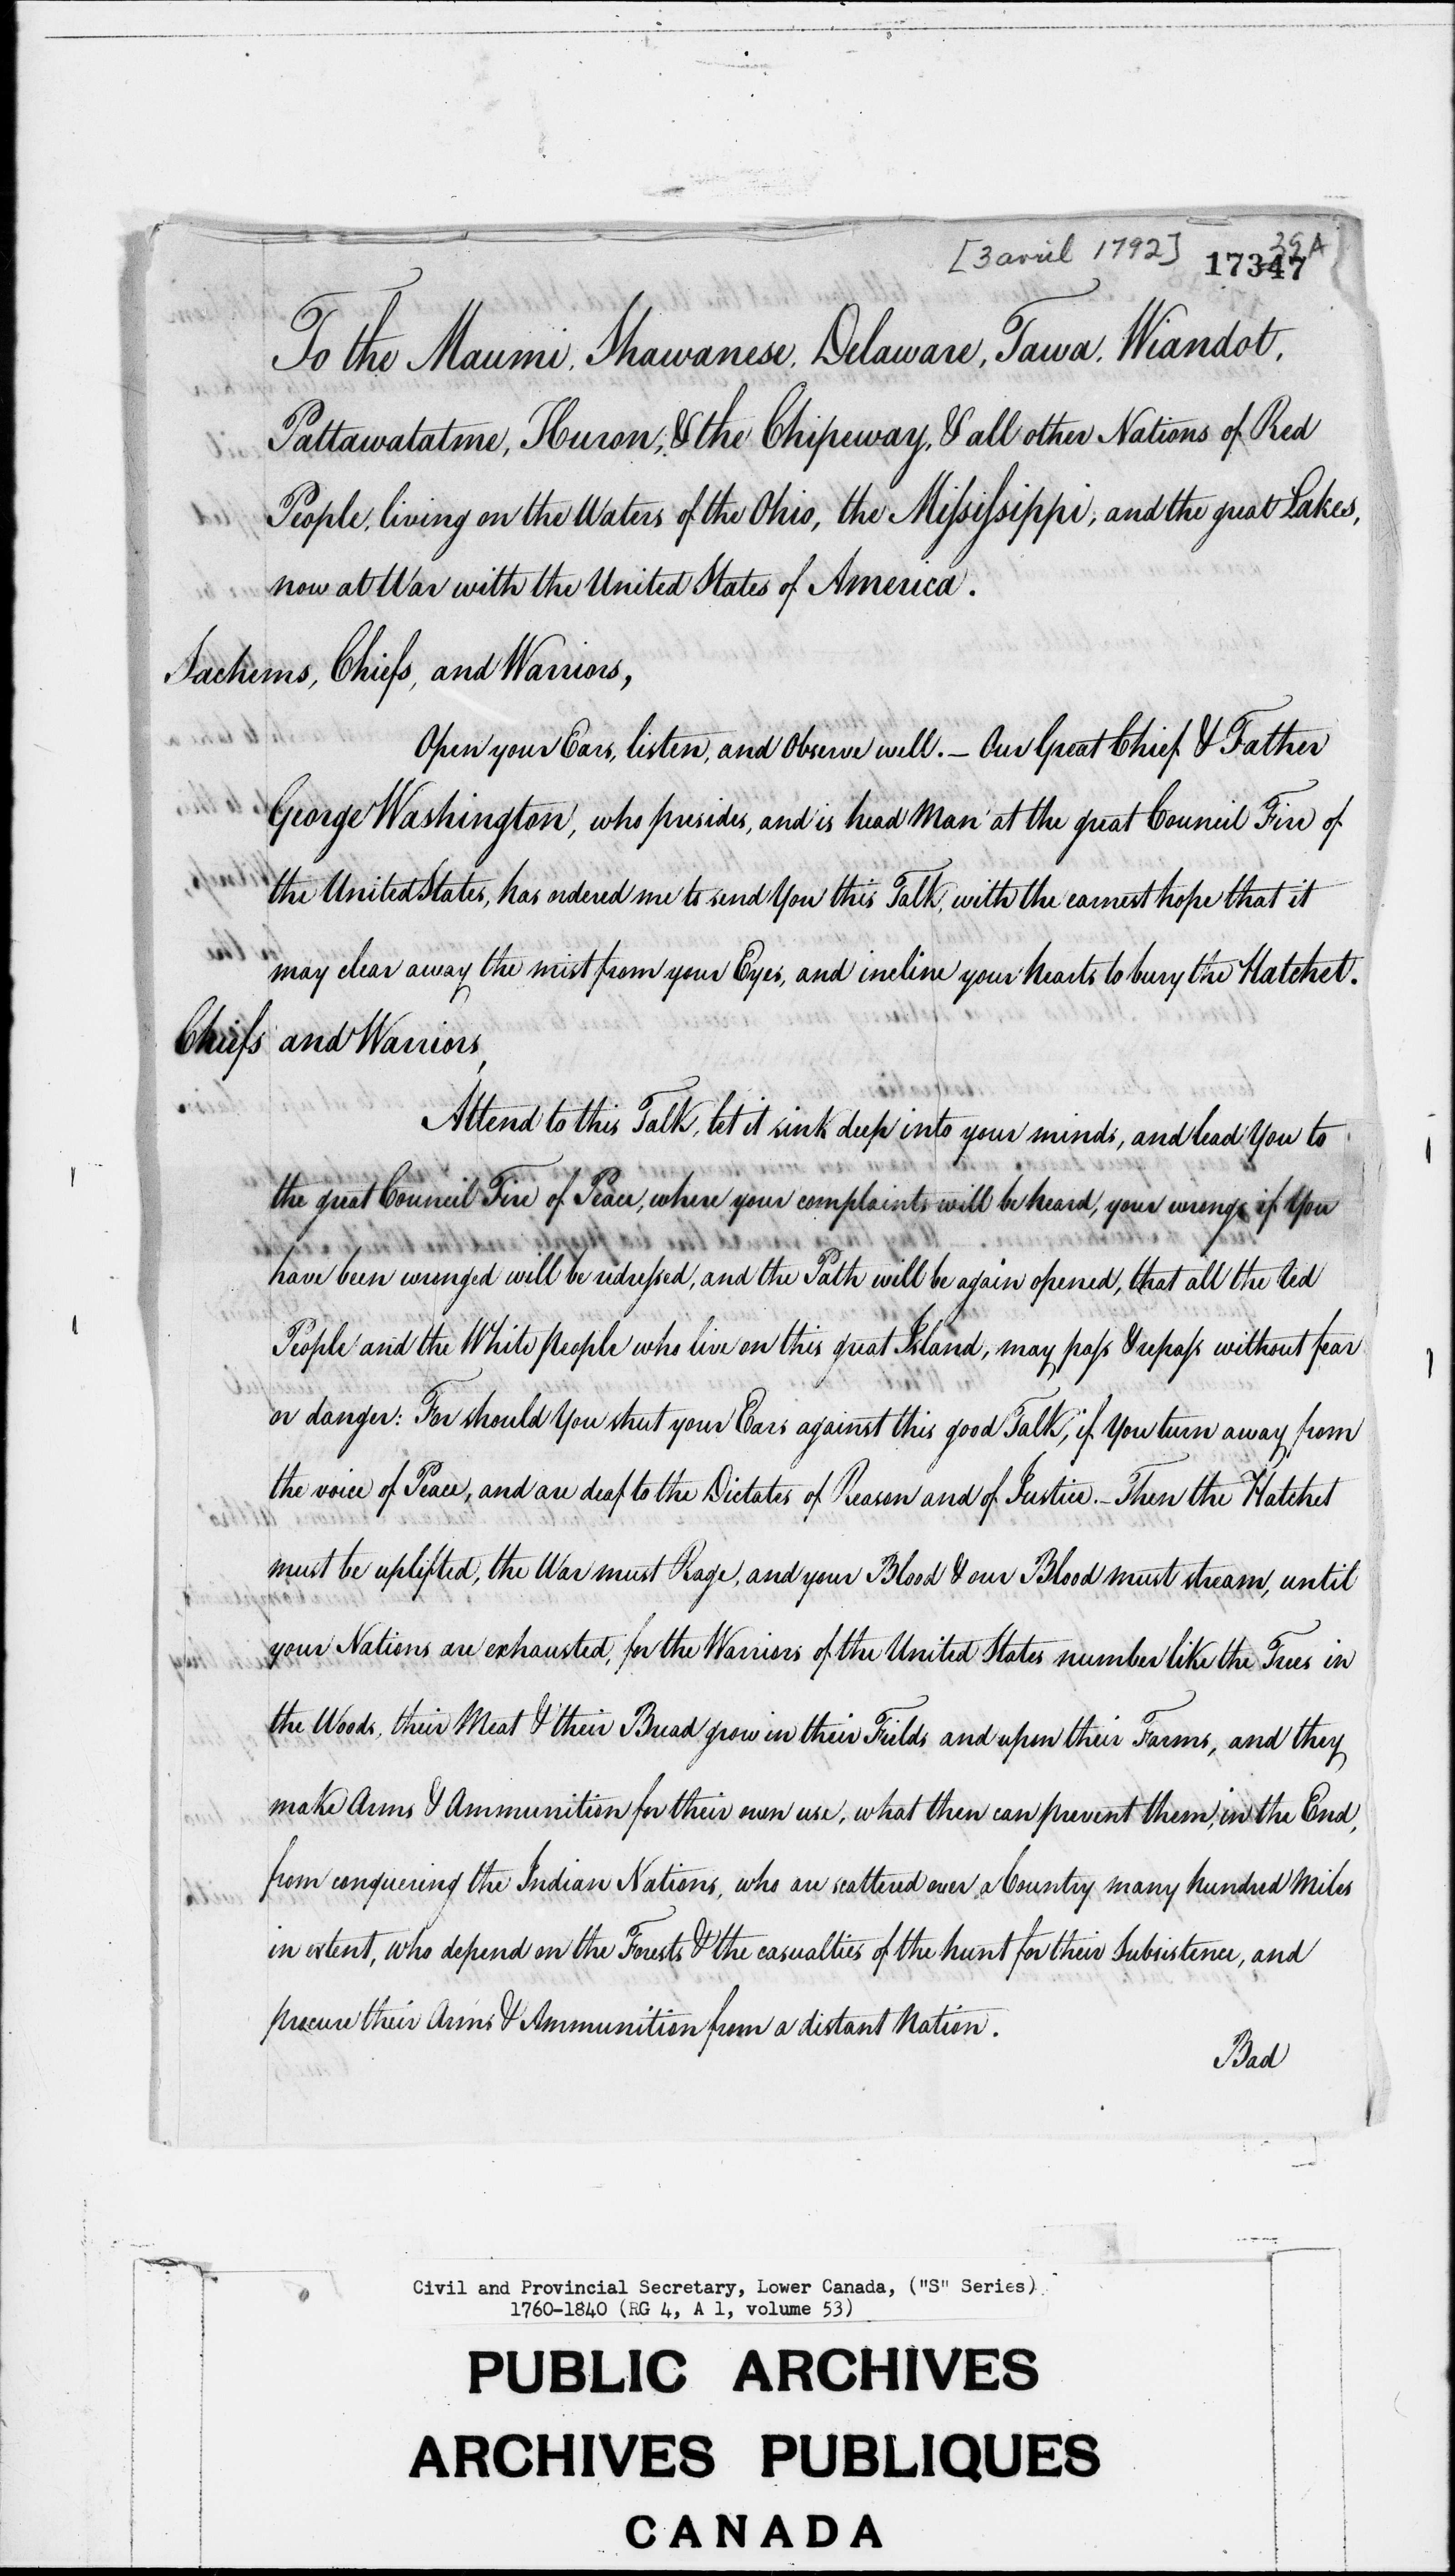 [3 avril 1792]
39A
17347
To the Maumi, Shawanese, Delaware, Tawa, Wiandot,
Pattawatatme, Huron, & the Chipeway, & all other Nations of Red
People, living on the Waters of the Ohio, the Mississippi, and the great Lakes,
now at War with the United States of America.
Sachems, Chiefs, and Warriors,
Open your Ears, listen, and Observe well. – Our Great Chief & Father
George Washington, who presides, and is head Man at the great Council Fire of
the United States, has ordered me to send You this Talk, with the earnest hope that it
may clear away the mist from your Eyes, and incline your hearts to bury the Hatchet.
Chiefs and Warriors,
Attend to this Talk, let it sink deep into your minds, and lead You to
the great Council Fire of Peace, where your complaints will be heard, your wrongs if You
have been wronged will be redressed, and the Path will be again opened, that all the red
People and the White people who live on this great Island, may pass & repass without fear
or danger: For should You shut your Ears against this good Talk, if You turn away from
the voice of Peace, and are deaf to the Dictates of Reason and of Justice. – Then the Hatchet
must be uplifted, the War must Rage, and your Blood & our Blood must stream, until
your Nations are exhausted, for the Warriors of the United States number like the Trees in
the Woods, their Meat & their Bread grow in their Fields and upon their Farms, and they
make Arms & Ammunition for their own use, what then can prevent them, in the End,
from conquering the Indian Nations, who are scattered over a Country many hundred Miles
in extent, who depend on the Forests & the casualties of the hunt for their Subsistence, and
procure their Arms & Ammunition from a distant Nation.
Bad
Civil and Provincial Secretary, Lower Canada, ("S" Series)
1760-1840 (RG 4, A 1, volume 53)
PUBLIC ARCHIVES
ARCHIVES PUBLIQUES
CANADA